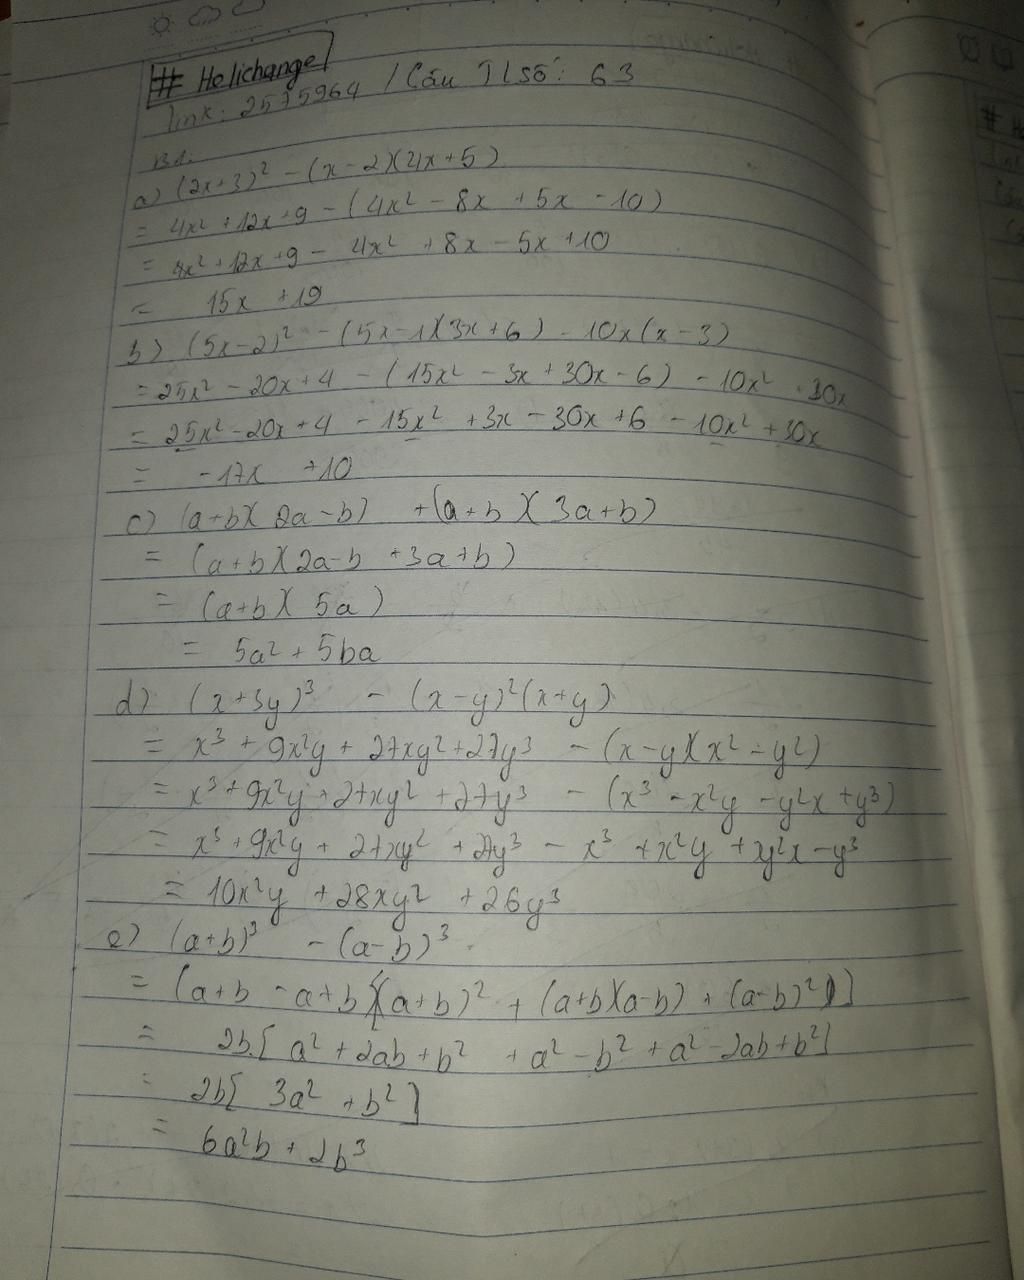 # Helichange
link: 2575964 / Câu TL số: 63
B1.
a) (2x+3)² - (x-2)(4x+5)
= 4x² + 12x + 9 - (4x² - 8x + 5x - 10)
= 4x² + 12x + 9 - 4x² + 8x - 5x + 10
= 15x + 19
b) (5x-2)² - (5x-1)(3x+6) - 10x(x-3)
= 25x² - 20x + 4 - (15x² - 3x + 30x - 6) - 10x² + 30x
= 25x² - 20x + 4 - 15x² + 3x - 30x + 6 - 10x² + 30x
= -17x + 10
c) (a+b)(2a-b) + (a+b)(3a+b)
= (a+b)(2a-b + 3a+b)
= (a+b)(5a)
= 5a² + 5ba
d) (x+3y)³ - (x-y)²(x+y)
= x³ + 9x²y + 27xy² + 27y³ - (x-y)(x² - y²)
= x³ + 9x²y + 27xy² + 27y³ - (x³ - x²y - y²x + y³)
= x³ + 9x²y + 27xy² + 27y³ - x³ + x²y + y²x - y³
= 10x²y + 28xy² + 26y³
e) (a+b)³ - (a-b)³
= (a+b - a+b)[(a+b)² + (a+b)(a-b) + (a-b)²]
= 2b[a² + 2ab + b² + a² - b² + a² - 2ab + b²]
= 2b[3a² + b²]
= 6a²b + 2b³